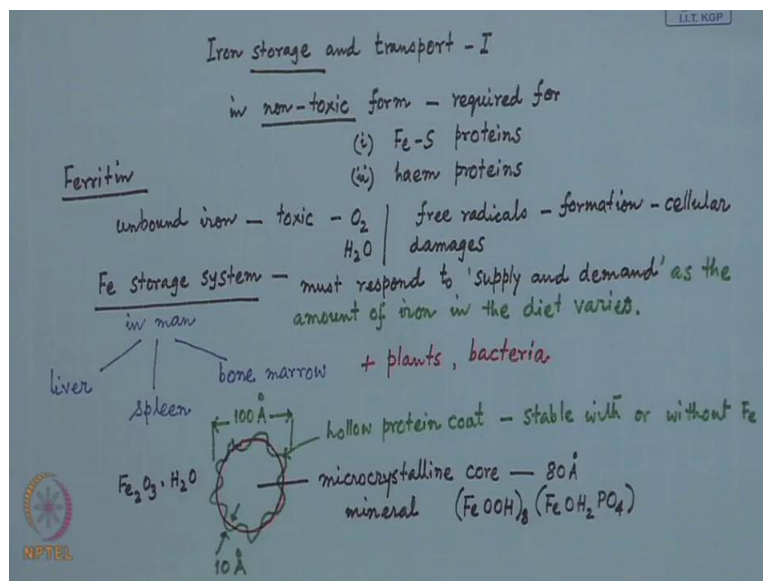 I.I.T. KGP
Iron storage and transport - I
in non-toxic form - required for
(i) Fe-S proteins
(ii) haem proteins
Ferritin
unbound iron - toxic - O₂ | free radicals - formation - cellular
H₂O | damages
Fe storage system - must respond to 'supply and demand' as the
amount of iron in the diet varies.
in man
liver
spleen
bone marrow
+ plants, bacteria
100 Å
hollow protein coat - stable with or without Fe
Fe₂O₃·H₂O
microcrystalline core - 80 Å
mineral (FeOOH)₈(FeOH₂PO₄)
10 Å
NPTEL